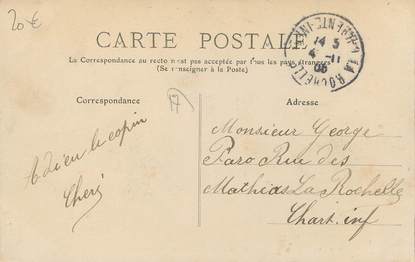 20 €
CARTE POSTALE
La Correspondance au recto n'est pas acceptée par tous les pays étrangers
(Se renseigner à la Poste)
LA ROCHELLE
CHARENTE-INF
14 5
4 -11
05
Correspondance
Adresse
Adieu le copin
Cheri
Monsieur George
Faro Rue des
Mathias La Rochelle
Chart. inf